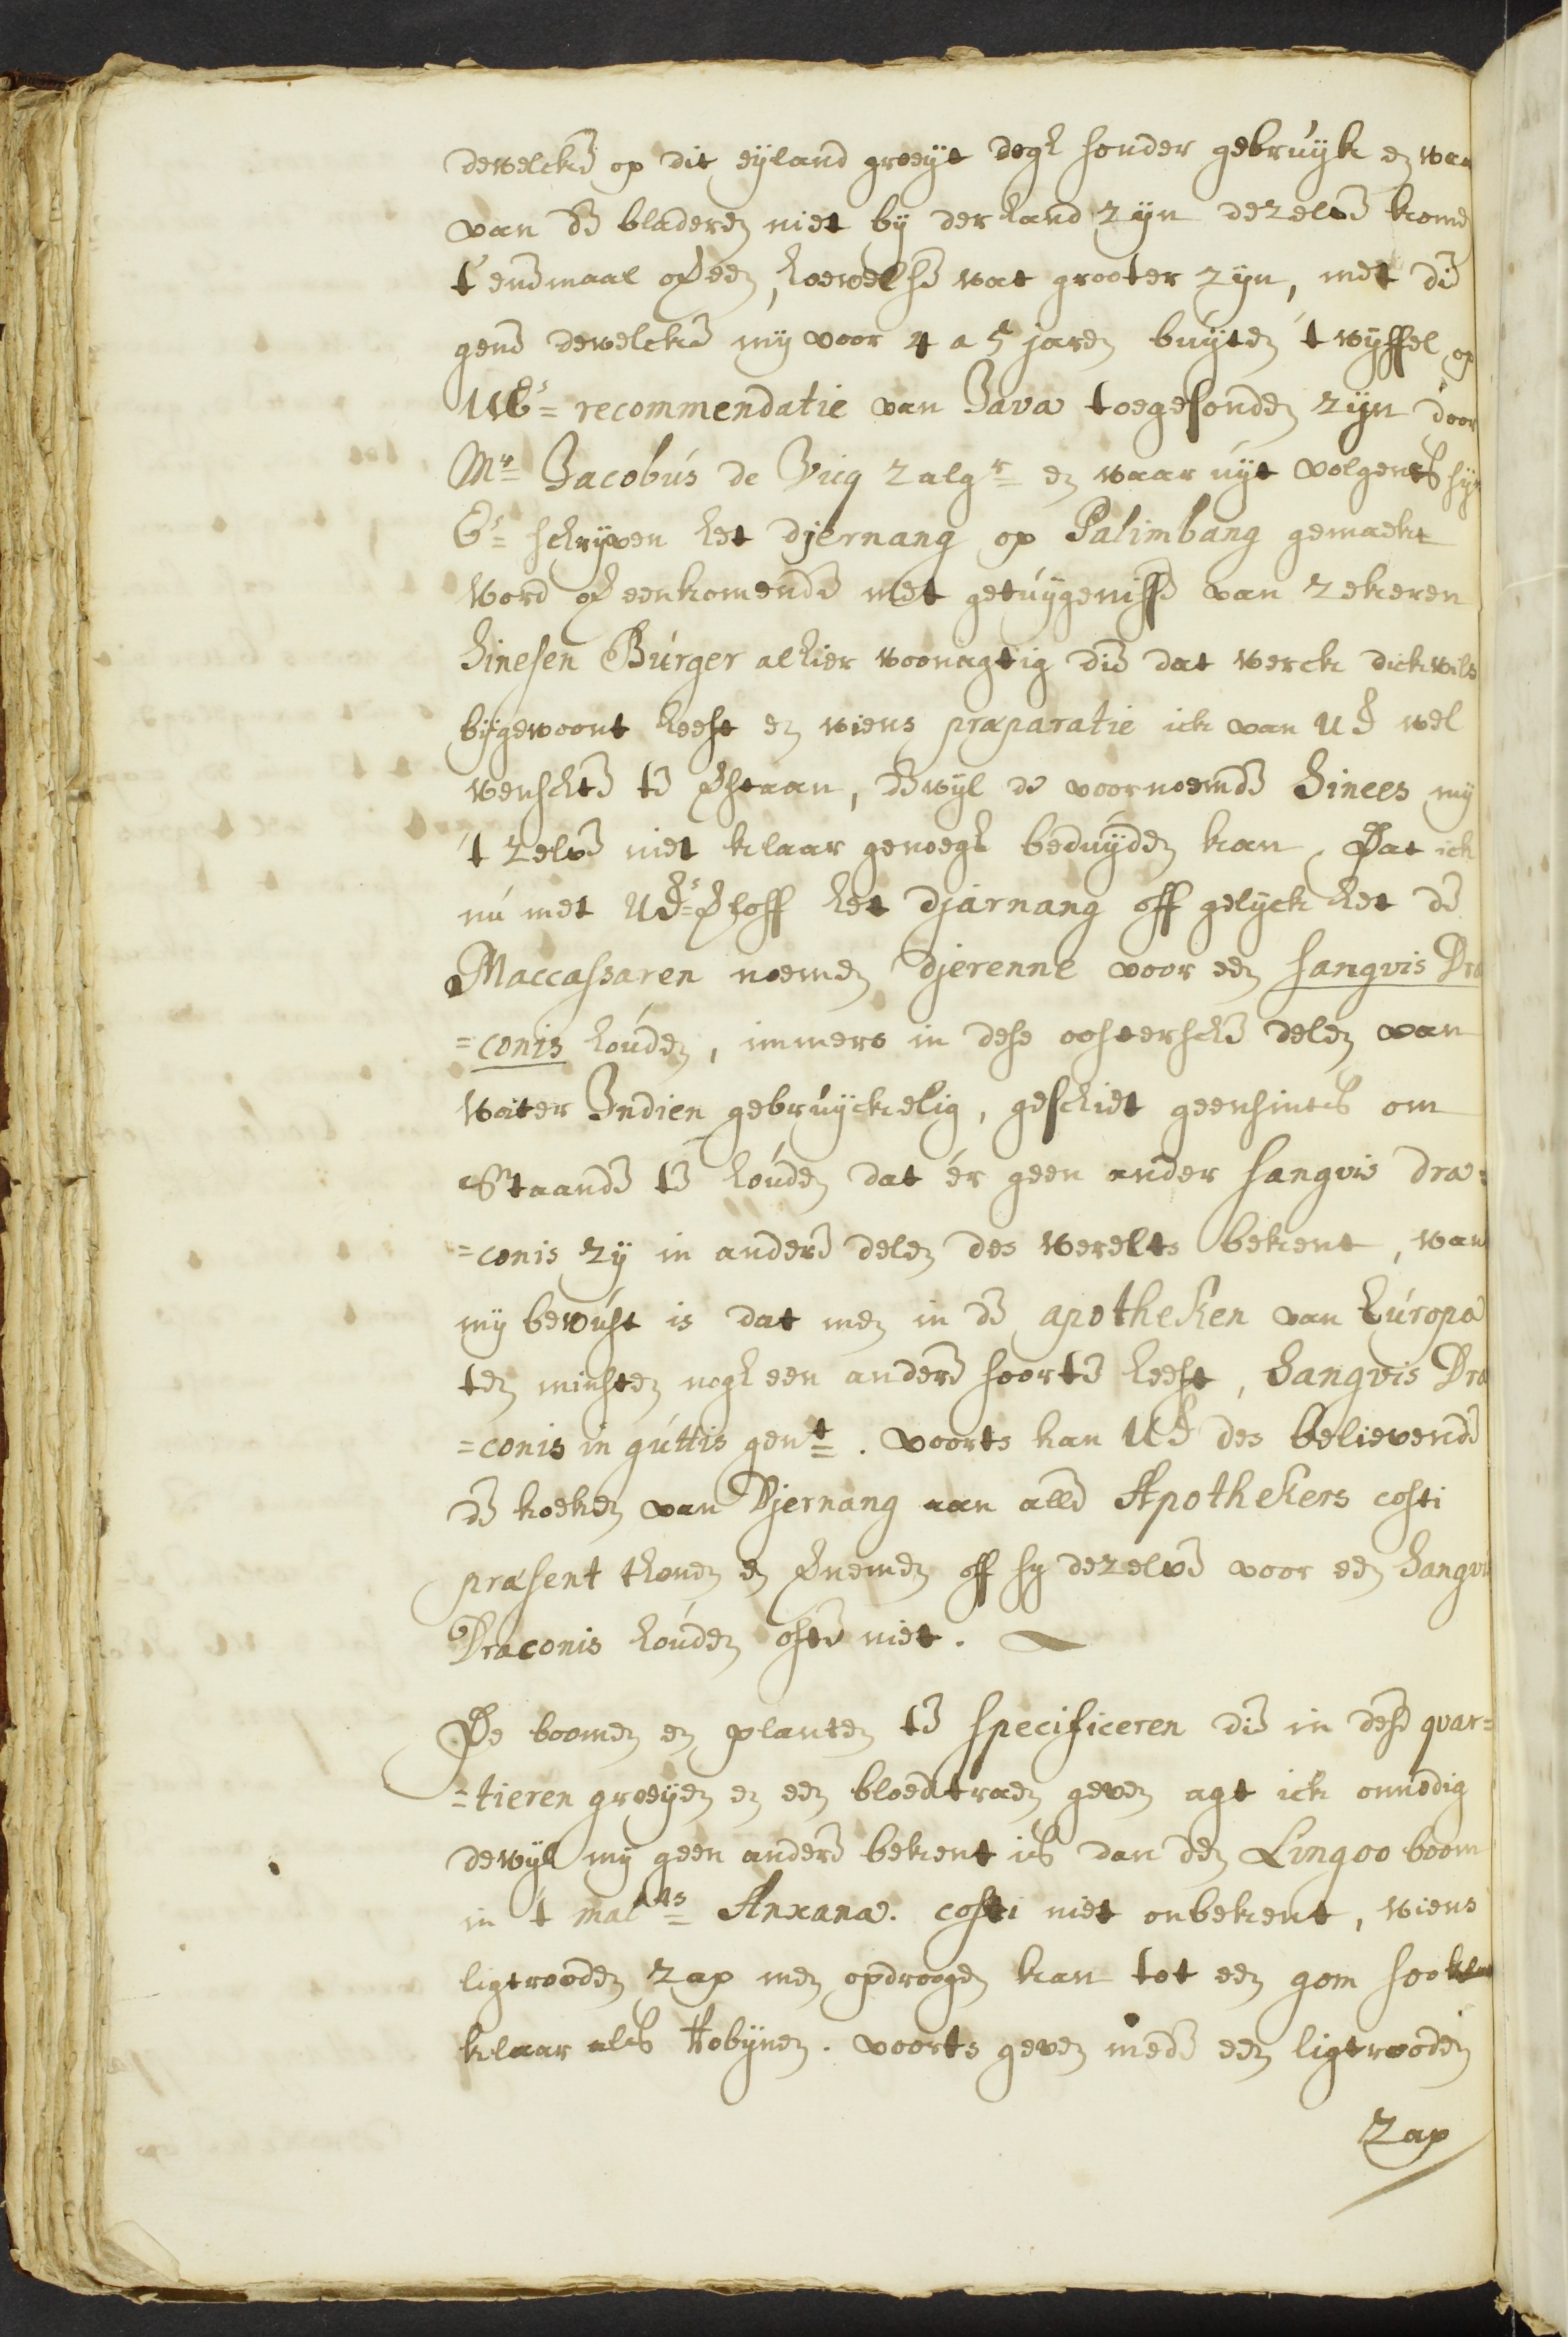 dewelcke op dit eyland groeyt dogh sonder gebruyk en wan
van de bladeren niet by der hand zyn dezelve kome
t'enemaal over een, hoewel se wat grooter zyn, met die
gene dewelcke my voor 4 a 5 jaren buyten 't wyffel op
UEs= recommendatie van Java toegesonden zyn door
Mr= Jacobus de Vicq zalgr= en waar uyt volgents syn
Es= schryven het djernang op Palimbang gemaekt
word over eenkomende met getuygenisse van zekeren
Sinesen Burger alhier woonagtig die dat werck dickwils
bygewoont heeft en wiens præparatie ick van UE wel
wenschte te verstaan, dewyl de voornoemde Sinees my
't zelve niet klaar genoegh beduyden kan, Dat ick
nu met UEs= verloff het djarnang off gelyck het de
Maccassaren noemen djerenne voor een sangvis Dra
=conis houden, immers in dese oostersche delen van
water Indien gebruyckelig, geschiet geensints om
Staande te houden dat 'er geen ander sangvis dra=
=conis zy in andere delen des werelts bekent, wan
my bewust is dat men in de apotheken van Europa
ten minsten nogh een andere soorte heeft, Sangvis Dra
=conis in guttis gent=. voorts kan UE des believende
de koeken van Djernang aan alle Apothekers costi
præsent thonen en vernemen off sy dezelve voor een Sangvi
Draconis houden ofte niet.
De boomen en planten te specificeren die in dese quar=
=tieren groeyen en een bloedtraen geven agt ick onnodig
dewyl my geen andere bekent is dan den Lingoo boom
in 't malts= Anxana. costi niet onbekent, wiens
ligtrooden zap men opdroogen kan tot een gom soo
klaar als Robynen. voorts geven mede een ligtrooden
zap